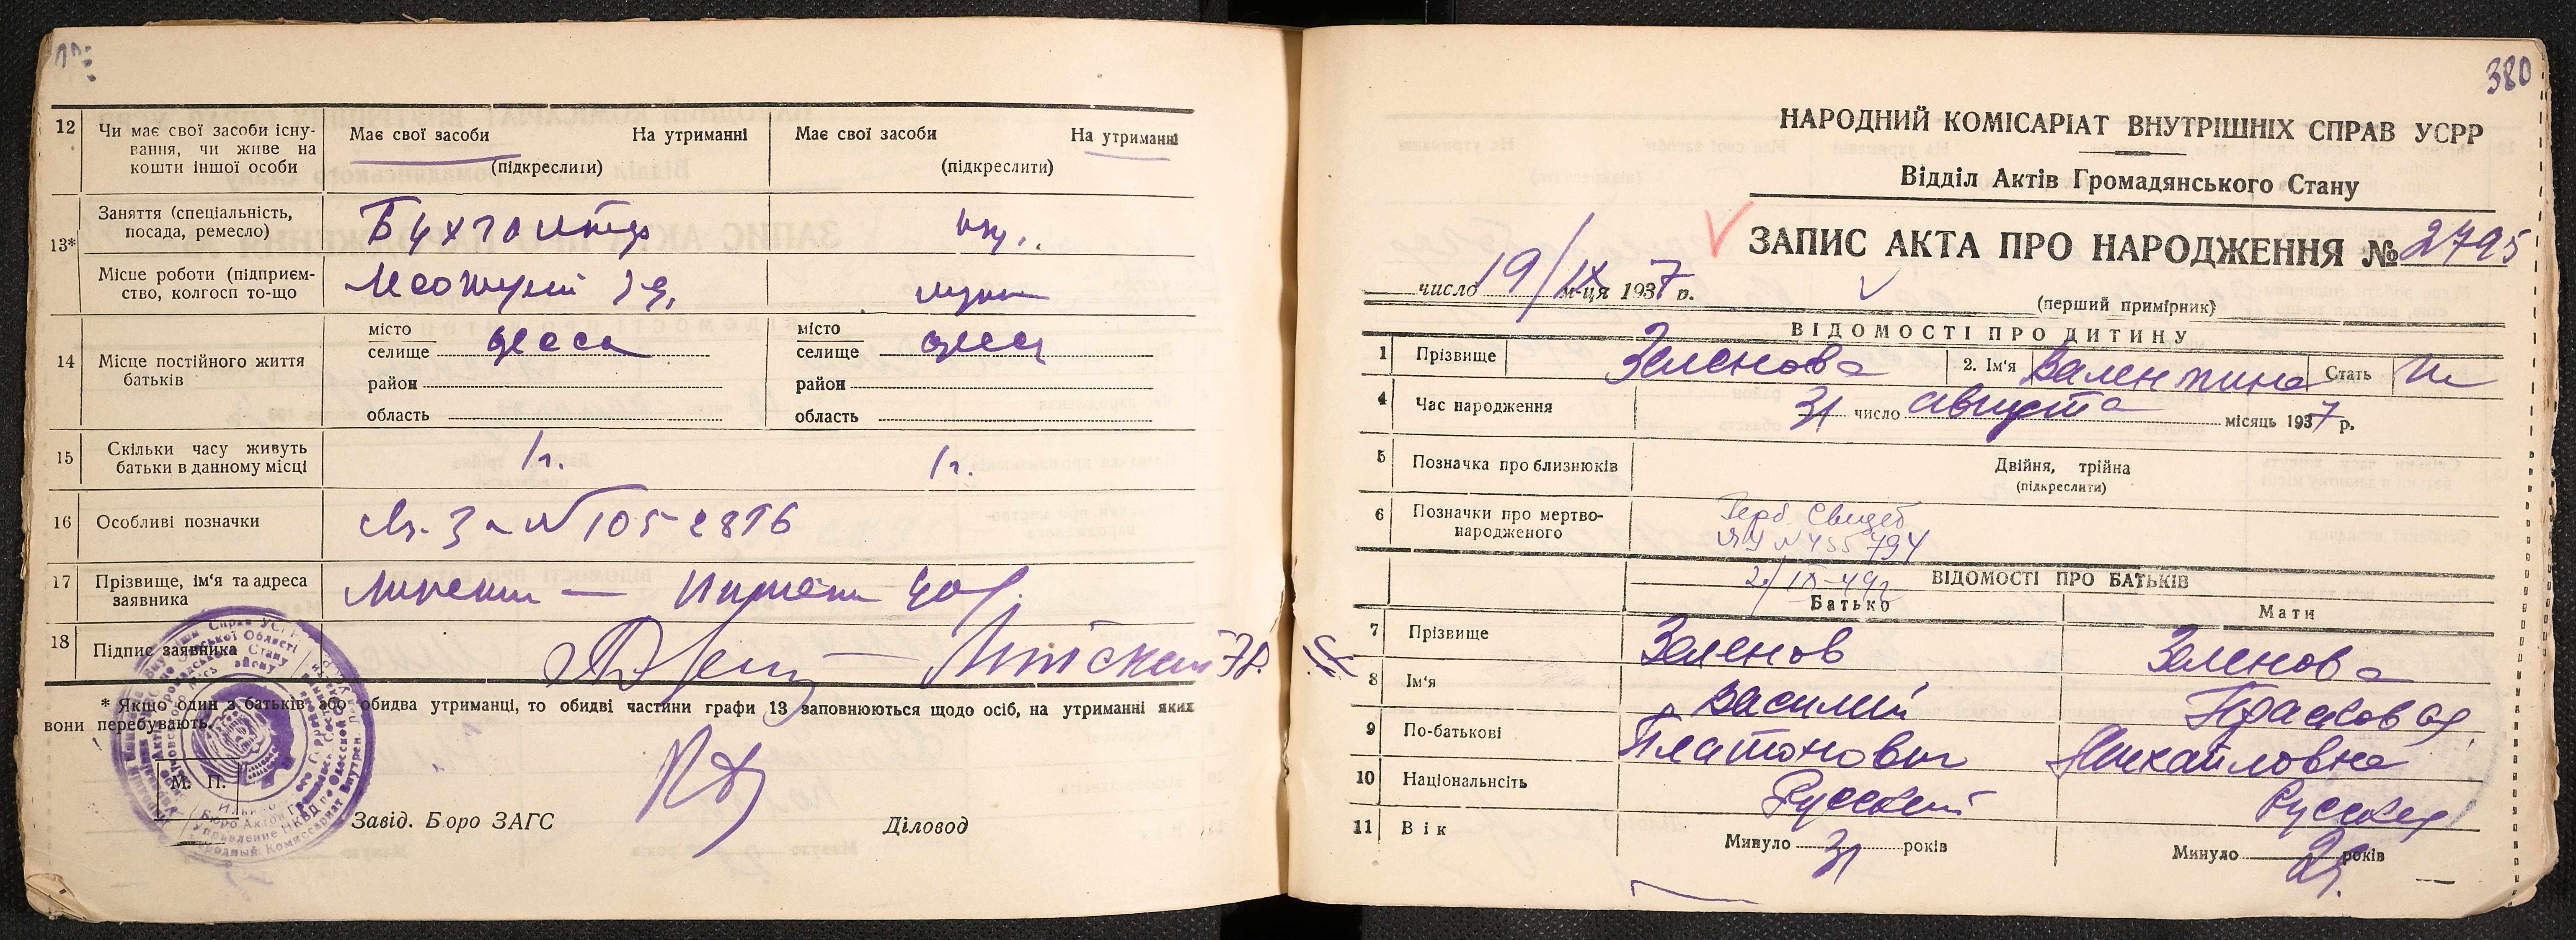 12 Чи має свої засоби існу-
вання, чи живе на
кошти іншої особи
Має свої засоби На утриманні
(підкреслити)
Має свої засоби На утриманні
(підкреслити)
13* Заняття (спеціальність,
посада, ремесло)
Бухгалтер
Місце роботи (підприєм-
ство, колгосп то-що
14 Місце постійного життя
батьків
місто
селище Одесса
район
область
місто
селище Одесса
район
область
15 Скільки часу живуть
батьки в данному місці
1 г. 1 г.
16 Особливі позначки
17 Прізвище, ім'я та адреса
заявника
18 Підпис заявника
* Якщо один з батьків або обидва утриманці, то обидві частини графи 13 заповнюються щодо осіб, на утриманні яких
вони перебувають.
М. П.
Завід. Бюро ЗАГС Діловод
380
НАРОДНИЙ КОМІСАРІАТ ВНУТРІШНІХ СПРАВ УСРР
Відділ Актів Громадянського Стану
ЗАПИС АКТА ПРО НАРОДЖЕННЯ № 2795
число 19/IX м-ця 1937 р.
(перший примірник)
ВІДОМОСТІ ПРО ДИТИНУ
1 Прізвище Зеленова 2. Ім'я Валентина Стать
4 Час народження 31 число августа місяць 1937 р.
5 Позначка про близнюків Двійня, трійна
(підкреслити)
6 Позначки про мертво-
народженого
Герб. Свидет
№ 455794
2/IX-49г
ВІДОМОСТІ ПРО БАТЬКІВ
Батько Мати
7 Прізвище Зеленов Зеленова
8 Ім'я Василий Прасковья
9 По-батькові Платонович Михайловна
10 Національність Русский Русская
11 Вік Минуло 31 років Минуло років